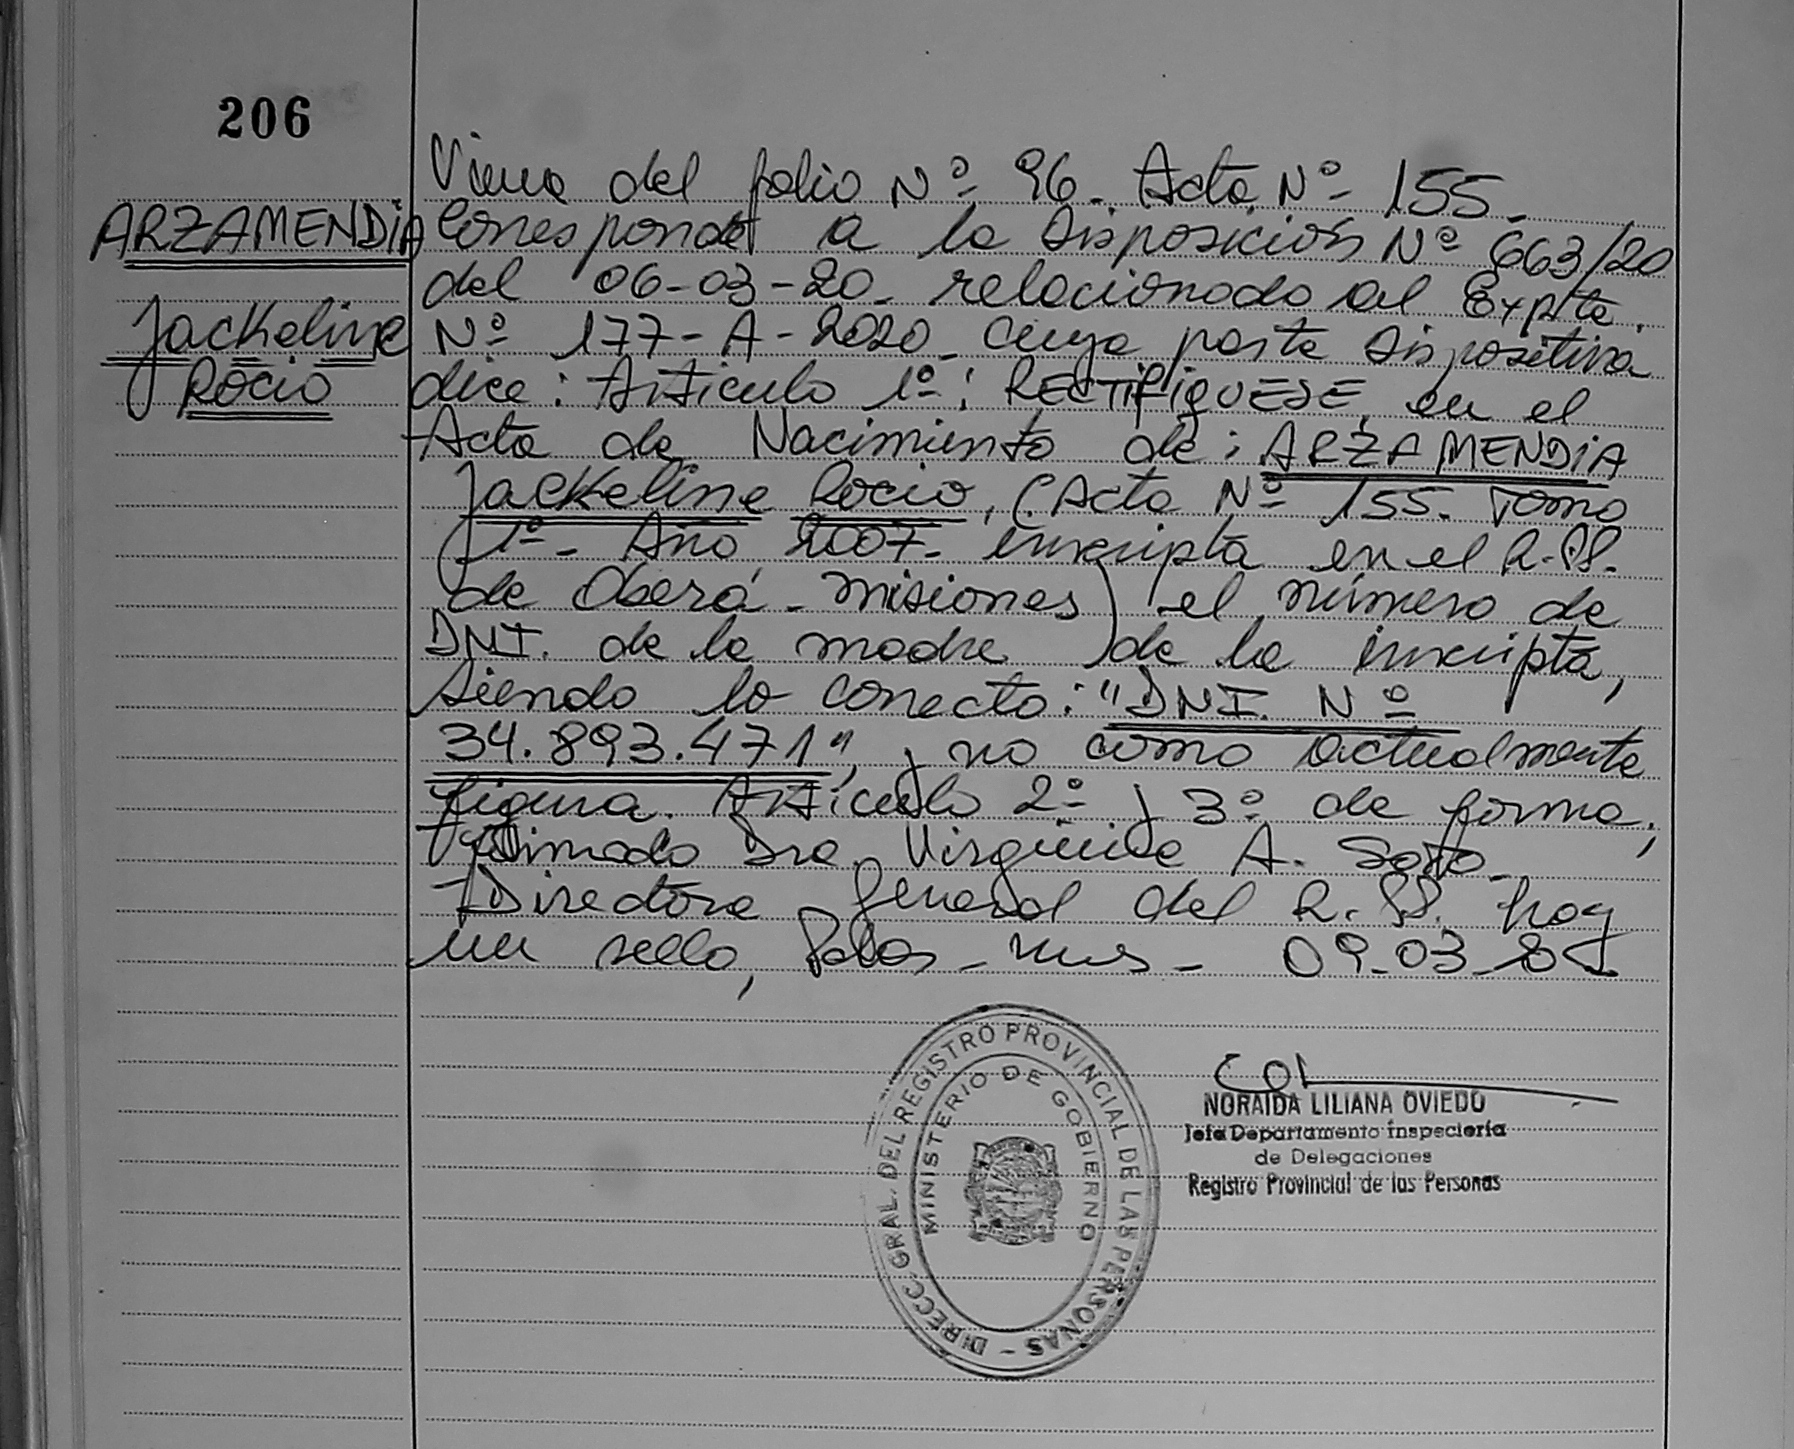 206
ARZAMENDIA
Jackeline
Rocio
Viene del folio Nº 96. Acta Nº 155.
Corresponde a la Disposición Nº 663/20
del 06-03-20. relacionado al Expte.
Nº 177-A-2020. Cuya parte Dispositiva
dice: Artículo 1º: RECTIFIQUESE, en el
Acta de Nacimiento de: ARZAMENDIA
Jackeline Rocio, (Acta Nº 155. Tomo
1º. Año 2007. inscripta en el R.PP.
de Oberá - Misiones) el número de
DNI. de la madre de la inscripta,
siendo lo correcto: "DNI. Nº
34.893.471", y no como actualmente
figura. Artículo 2º y 3º de forma,
Firmado Dra. Virginia A. Soto.
Directora General del R.PP. hay
un sello, Pdas - Mnes - 09-03-
DIRECC. GRAL. DEL REGISTRO PROVINCIAL DE LAS PERSONAS -
MINISTERIO DE GOBIERNO
NORAIDA LILIANA OVIEDO
Jefa Departamento Inspectoría
de Delegaciones
Registro Provincial de las Personas